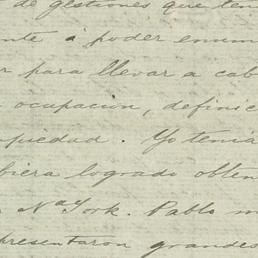 de gestiones que ten
nte á poder enum
r para llevar a cab
ocupación, definic
piedad. Yo tenía
biera logrado obten
Na York. Pablo m
presentaron grandes